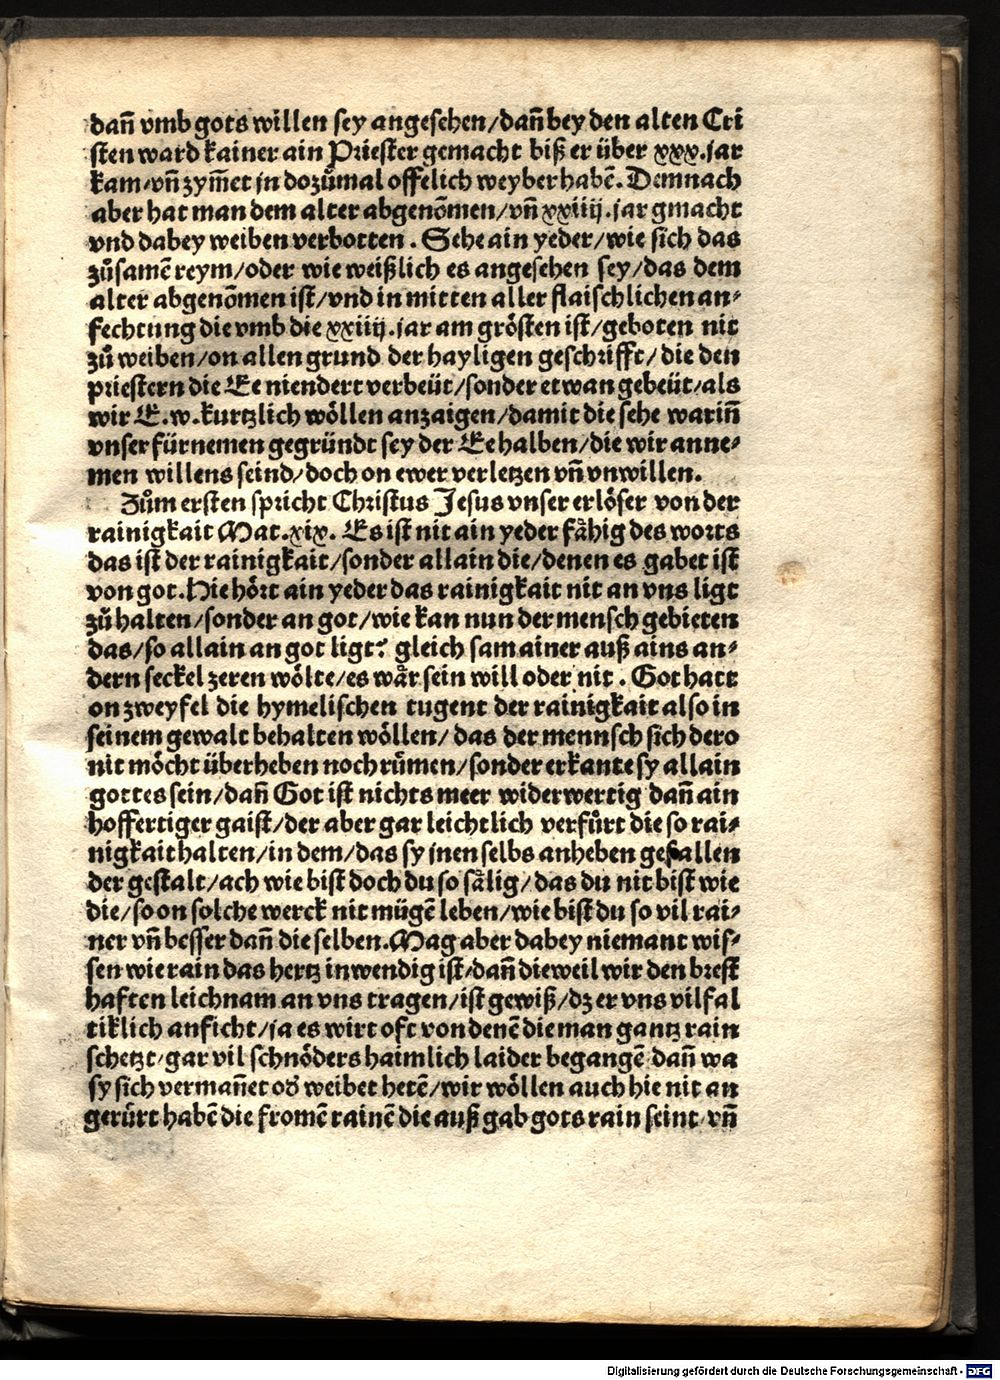 dañ vmb gots willen sey angesehen/dañ bey den alten Cri
sten ward kainer ain Priester gemacht biß er über xxx.jar
kam/vñ zym̃et jn dozůmal offelich weyber habẽ. Demnach
aber hat man dem alter abgenõmen/vñ xxiiij.jar gmacht
vnd dabey weiben verbotten. Sehe ain yeder/wie sich das
zůsamẽ reym/oder wie weißlich es angesehen sey/das dem
alter abgenõmen ist/vnd in mitten aller flaischlichen an⸗
fechtung die vmb die xxiiij.jar am grösten ist/geboten nit
zů weiben/on allen grund der hayligen geschrifft/die den
priestern die Ee niendert verbeüt/sonder etwan gebeüt/als
wir E.w.kurtzlich wöllen anzaigen/damit die sehe warin̄
vnser fürnemen gegründt sey der Ee halben/die wir anne⸗
men willens seind/doch on ewer verletzen vñ vnwillen.
Zům ersten spricht Christus Jesus vnser erlöser von der
rainigkait Mat.xix. Es ist nit ain yeder fähig des worts
das ist der rainigkait/sonder allain die/denen es gabet ist
von got.Hie hört ain yeder das rainigkait nit an vns ligt
zů halten/sonder an got/wie kan nun der mensch gebieten
das/so allain an got ligt? gleich sam ainer auß ains an⸗
dern seckel zeren wölte/es wär sein will oder nit. Got hatt
on zweyfel die hymelischen tugent der rainigkait also in
seinem gewalt behalten wöllen/das der mennsch sich dero
nit möcht überheben noch růmen/sonder erkante sy allain
gottes sein/dañ Got ist nichts meer widerwertig dañ ain
hoffertiger gaist/der aber gar leichtlich verfůrt die so rai⸗
nigkait halten/in dem/das sy jnen selbs anheben gefallen
der gestalt/ach wie bist doch du so sälig/das du nit bist wie
die/so on solche werck nit mügẽ leben/wie bist du so vil rai⸗
ner vñ besser dañ die selben.Mag aber dabey niemant wis⸗
sen wie rain das hertz inwendig ist/dañ dieweil wir den brest
hafften leichnam an vns tragen/ist gewiß/dz er vns vilfal
tiklich anficht/ja es wirt oft von denẽ die man gantz rain
schetzt/gar vil schnöders haimlich laider begangẽ dañ wa
sy sich vermañet od̕ weibet hetẽ/wir wöllen auch hie nit an
gerürt habẽ die fromẽ rainẽ die auß gab gots rain seint/vñ
Digitalisierung gefördert durch die Deutsche Forschungsgemeinschaft - DFG